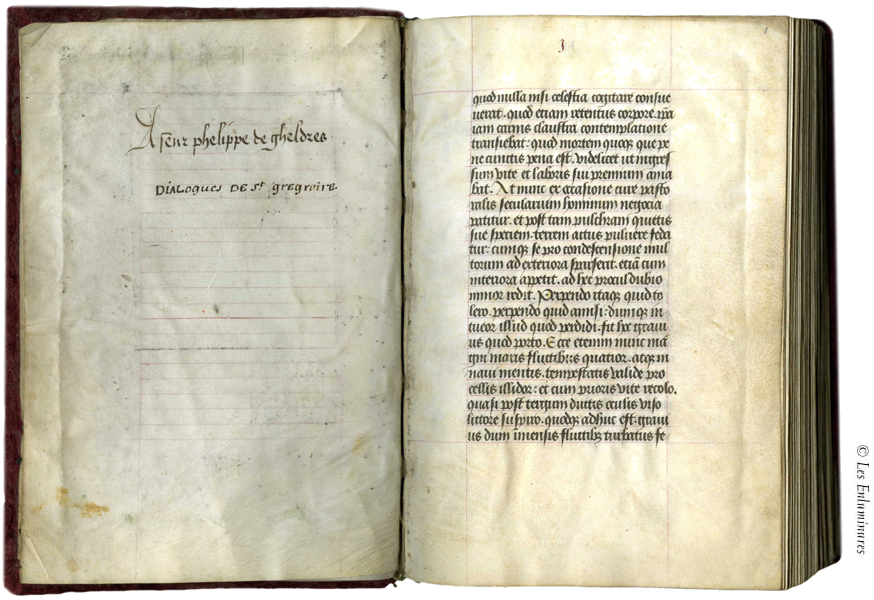 A sœur phelippe de gheldres
DIALOGUES DE St gregroire.
3
1
quod nulla nisi celestia cogitare consue
uerat. quod etiam retentus corpore. ipsa
iam carnis claustra contemplatione
transiebat: quod mortem quoqꝫ que pe
ne cunctis pena est. videlicet ut ingres
sum vite et laboris sui premium ama
bat. At nunc ex occasione cure pasto
ralis secularium hominum negocia
patitur. et post tam pulchram quietis
sue speciem. terreni actus puluere feda
tur: cumqꝫ se pro condescensione mul
torum ad exteriora sparserit. etiã cum
interiora appetit. ad hec procul dubio
minor redit. Perpendo itaqꝫ quid to
lero. perpendo quid amisi: dumqꝫ in
tueor illud quod perdidi. fit hoc graui
us quod porto. Ecce etenim nunc ma
gni maris fluctibus quatior. atqꝫ in
naui mentis. tempestatis valide pro
cellis illidor: et cum prioris vite recolo.
quasi post tergum ductis oculis viso
littore suspiro. quodqꝫ adhuc est graui
us dum ĩmensis fluctibꝫ turbatus fe
© Les Enluminures